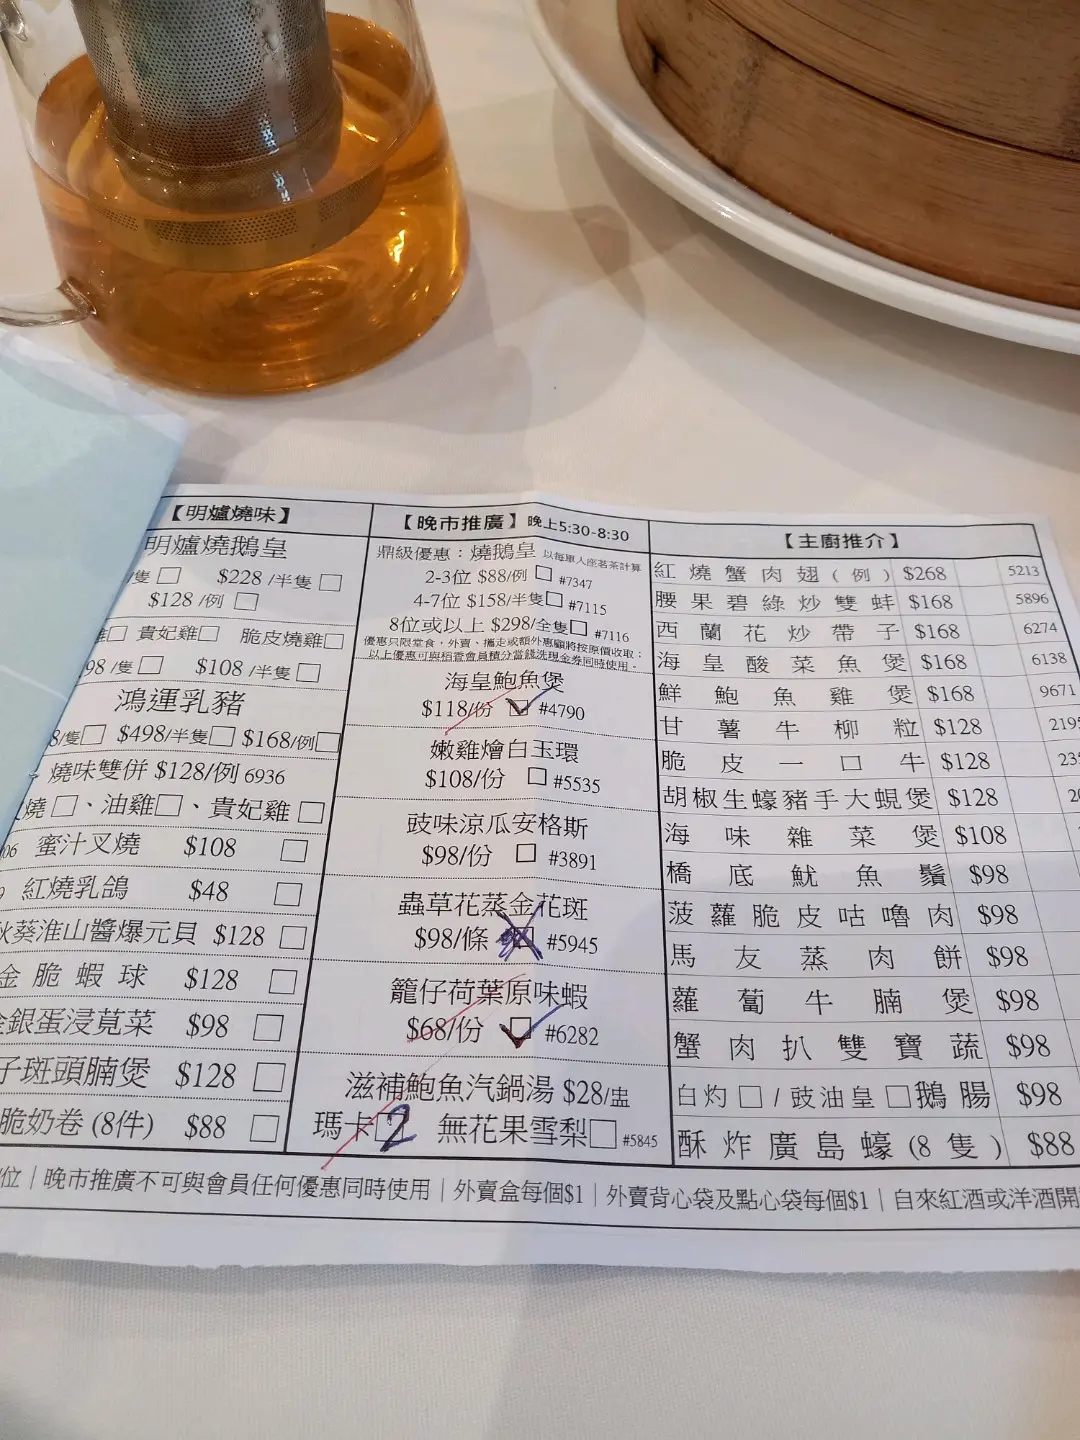 【明爐燒味】
明爐燒鵝皇
/隻□ $228 /半隻□
$128 /例□
□ 貴妃雞□ 脆皮燒雞□
98 /隻□ $108 /半隻□
鴻運乳豬
8/隻□ $498/半隻□ $168/例□
燒味雙併 $128/例 6936
燒□、油雞□、貴妃雞□
06 蜜汁叉燒 $108 □
9 紅燒乳鴿 $48 □
秋葵淮山醬爆元貝 $128 □
金脆蝦球 $128 □
金銀蛋浸莧菜 $98 □
子斑頭腩煲 $128 □
脆奶卷 (8件) $88 □
【晚市推廣】晚上5:30-8:30
鼎級優惠：燒鵝皇 以每單入座茗茶計算
2-3位 $88/例 □ #7347
4-7位 $158/半隻□ #7115
8位或以上 $298/全隻□ #7116
優惠只限堂食，外賣、攜走或額外惠顧將按原價收取；
以上優惠可與稻香會員積分當錢洗現金券同時使用。
海皇鮑魚煲
$118/份 ☑ #4790
嫩雞燴白玉環
$108/份 □ #5535
豉味涼瓜安格斯
$98/份 □ #3891
蟲草花蒸金花斑
$98/條 □ #5945
籠仔荷葉原味蝦
$68/份 ☑ #6282
滋補鮑魚汽鍋湯 $28/盅
瑪卡□2 無花果雪梨□ #5845
【主廚推介】
紅燒蟹肉翅(例) $268 5213
腰果碧綠炒雙蚌 $168 5896
西蘭花炒帶子 $168 6274
海皇酸菜魚煲 $168 6138
鮮鮑魚雞煲 $168 9671
甘薯牛柳粒 $128 2195
脆皮一口牛 $128 235
胡椒生蠔豬手大蜆煲 $128 20
海味雜菜煲 $108
橋底魷魚鬚 $98
菠蘿脆皮咕嚕肉 $98
馬友蒸肉餅 $98
蘿蔔牛腩煲 $98
蟹肉扒雙寶蔬 $98
白灼□/豉油皇□鵝腸 $98
酥炸廣島蠔(8隻) $88
位｜晚市推廣不可與會員任何優惠同時使用｜外賣盒每個$1｜外賣背心袋及點心袋每個$1｜自來紅酒或洋酒開